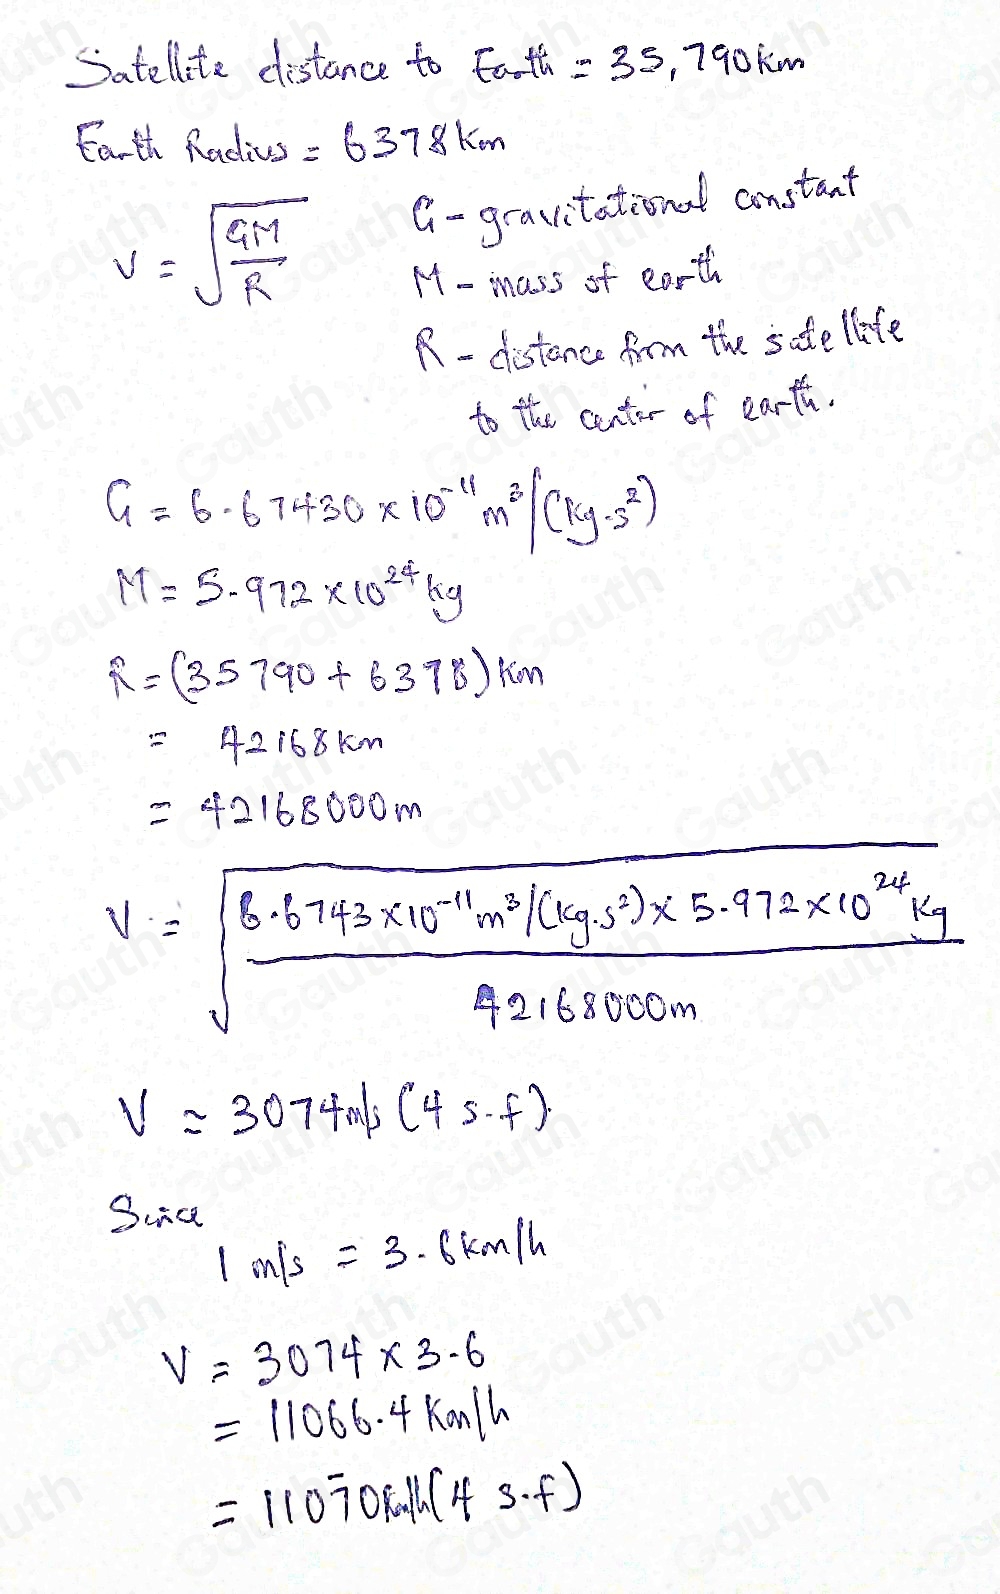 Satellite distance to Earth = 35,790km
Earth Radius = 6378km
V = √(GM/R)
G - gravitational constant
M - mass of earth
R - distance from the satellite
to the center of earth.
G = 6.67430 × 10⁻¹¹ m³/(kg.s²)
M = 5.972 × 10²⁴ kg
R = (35790 + 6378) km
= 42168 km
= 42168000m
V = √(6.6743 × 10⁻¹¹ m³/(kg.s²) × 5.972 × 10²⁴ kg / 42168000m)
V ≃ 3074 m/s (4 s.f)
Since
1 m/s = 3.6km/h
V = 3074 × 3.6
= 11066.4 Km/h
= 11070Km/h (4 s.f)